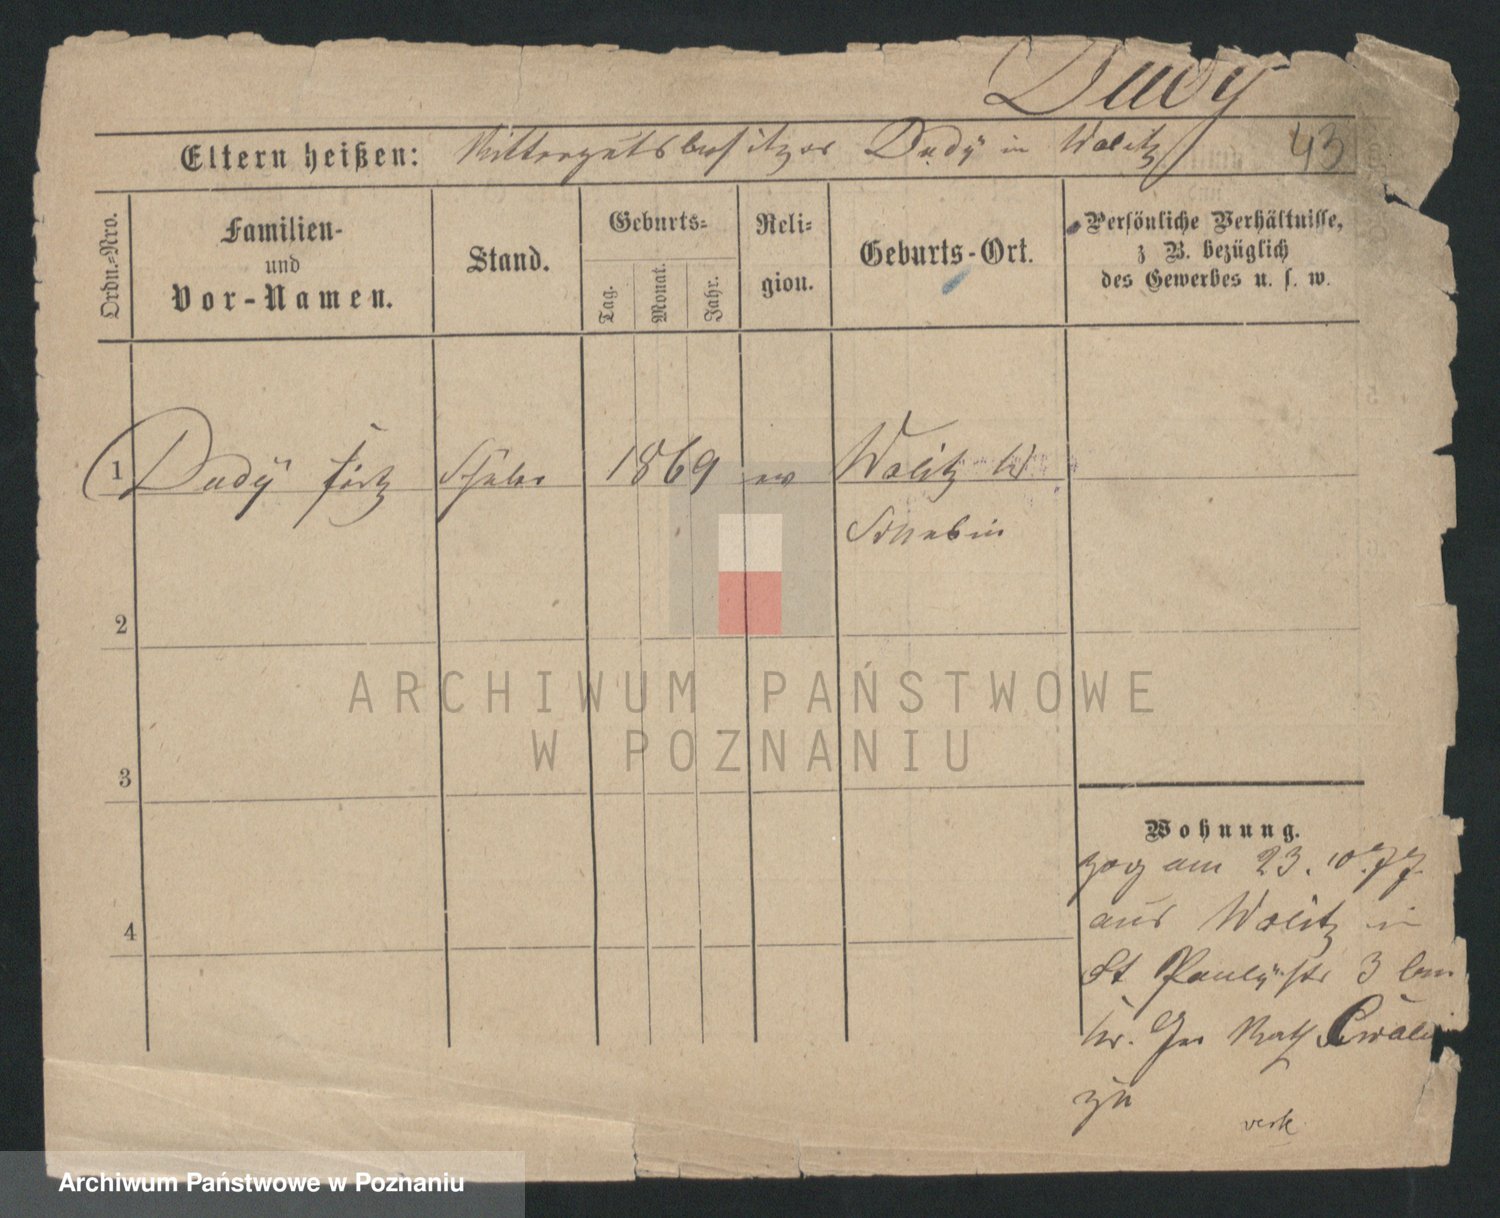 Dudy
Eltern heißen: Rittergutsbesitzer Dudÿ in Wolitz
43
Ordn.-Nro.
Familien-
und
Vor-Namen.
Stand.
Geburts-
Tag.
Monat.
Jahr.
Reli-
gion.
Geburts-Ort.
Persönliche Verhältnisse,
z. B. bezüglich
des Gewerbes u. s. w.
1 Dudÿ Schüler 1869 ev Wolitz Kr
Schubin
2
3
4
Wohnung.
zog am 23.10.77.
aus Wolitz in
St Paulystr 3 bei
Hr. Rath
zu
ARCHIWUM PAŃSTWOWE
W POZNANIU
Archiwum Państwowe w Poznaniu